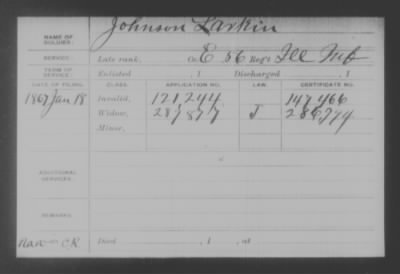 NAME OF SOLDIER: Johnson Larkin
SERVICE: Late rank, Co. E 56 Reg't Ill Inf
TERM OF SERVICE: Enlisted , 1 Discharged , 1
DATE OF FILING. CLASS. APPLICATION NO. LAW. CERTIFICATE NO.
1867 Jan 18 Invalid, 121244 147466
Widow, 287877 J 286774
Minor,
ADDITIONAL SERVICES:
REMARKS:
C.R. Died , 1 , at